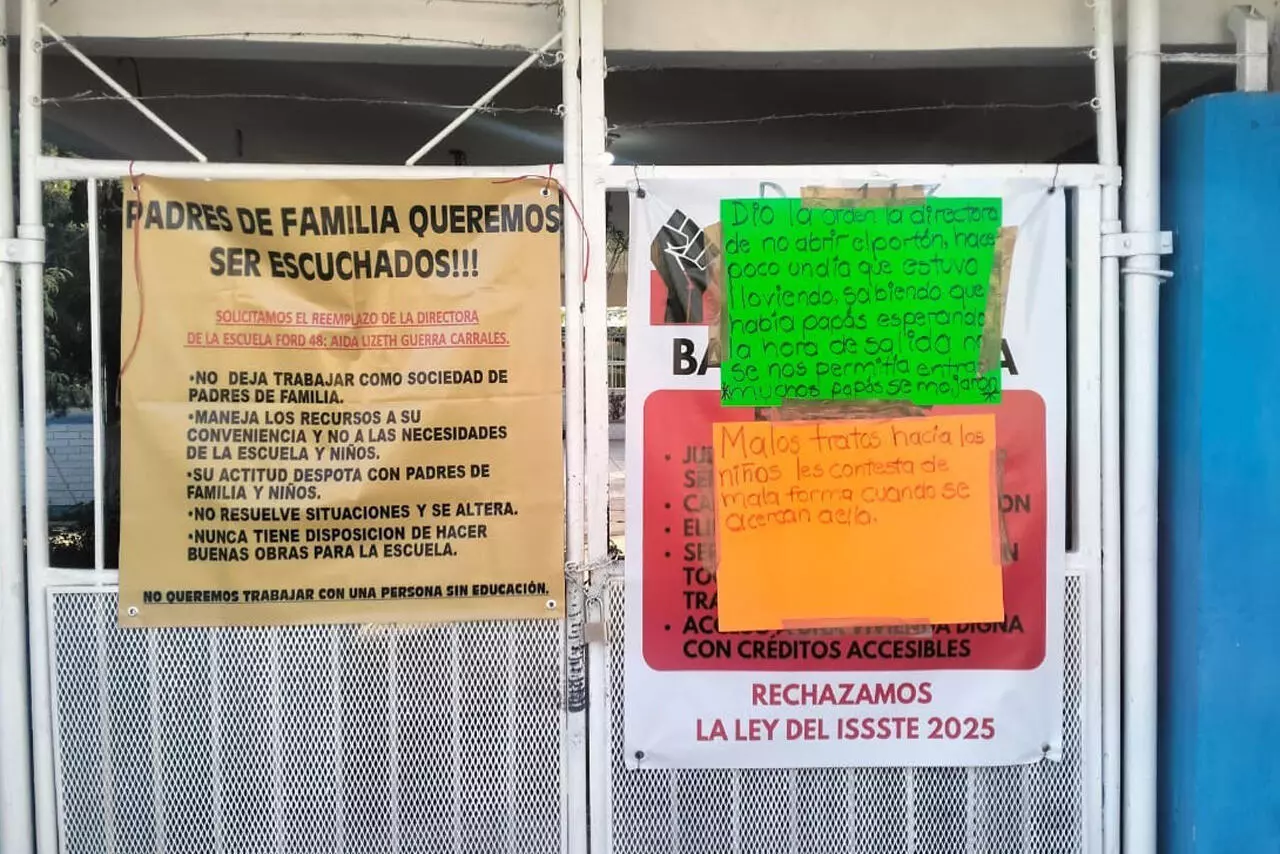 PADRES DE FAMILIA QUEREMOS
SER ESCUCHADOS!!!
SOLICITAMOS EL REEMPLAZO DE LA DIRECTORA
DE LA ESCUELA FORD 48: AIDA LIZETH GUERRA CARRALES.
•NO DEJA TRABAJAR COMO SOCIEDAD DE
PADRES DE FAMILIA.
•MANEJA LOS RECURSOS A SU
CONVENIENCIA Y NO A LAS NECESIDADES
DE LA ESCUELA Y NIÑOS.
•SU ACTITUD DESPOTA CON PADRES DE
FAMILIA Y NIÑOS.
•NO RESUELVE SITUACIONES Y SE ALTERA.
•NUNCA TIENE DISPOSICION DE HACER
BUENAS OBRAS PARA LA ESCUELA.
NO QUEREMOS TRABAJAR CON UNA PERSONA SIN EDUCACIÓN.
Dio la orden la directora
de no abrir el portón, hace
poco un día que estuva
lloviendo, sabiendo que
había papás esperando
la hora de salida no
se nos permitía entrar
*muchos papás se mojaron*
Malos tratos hacía los
niños les contesta de
mala forma cuando se
acercan aella.
DIGNA
CON CRÉDITOS ACCESIBLES
RECHAZAMOS
LA LEY DEL ISSSTE 2025